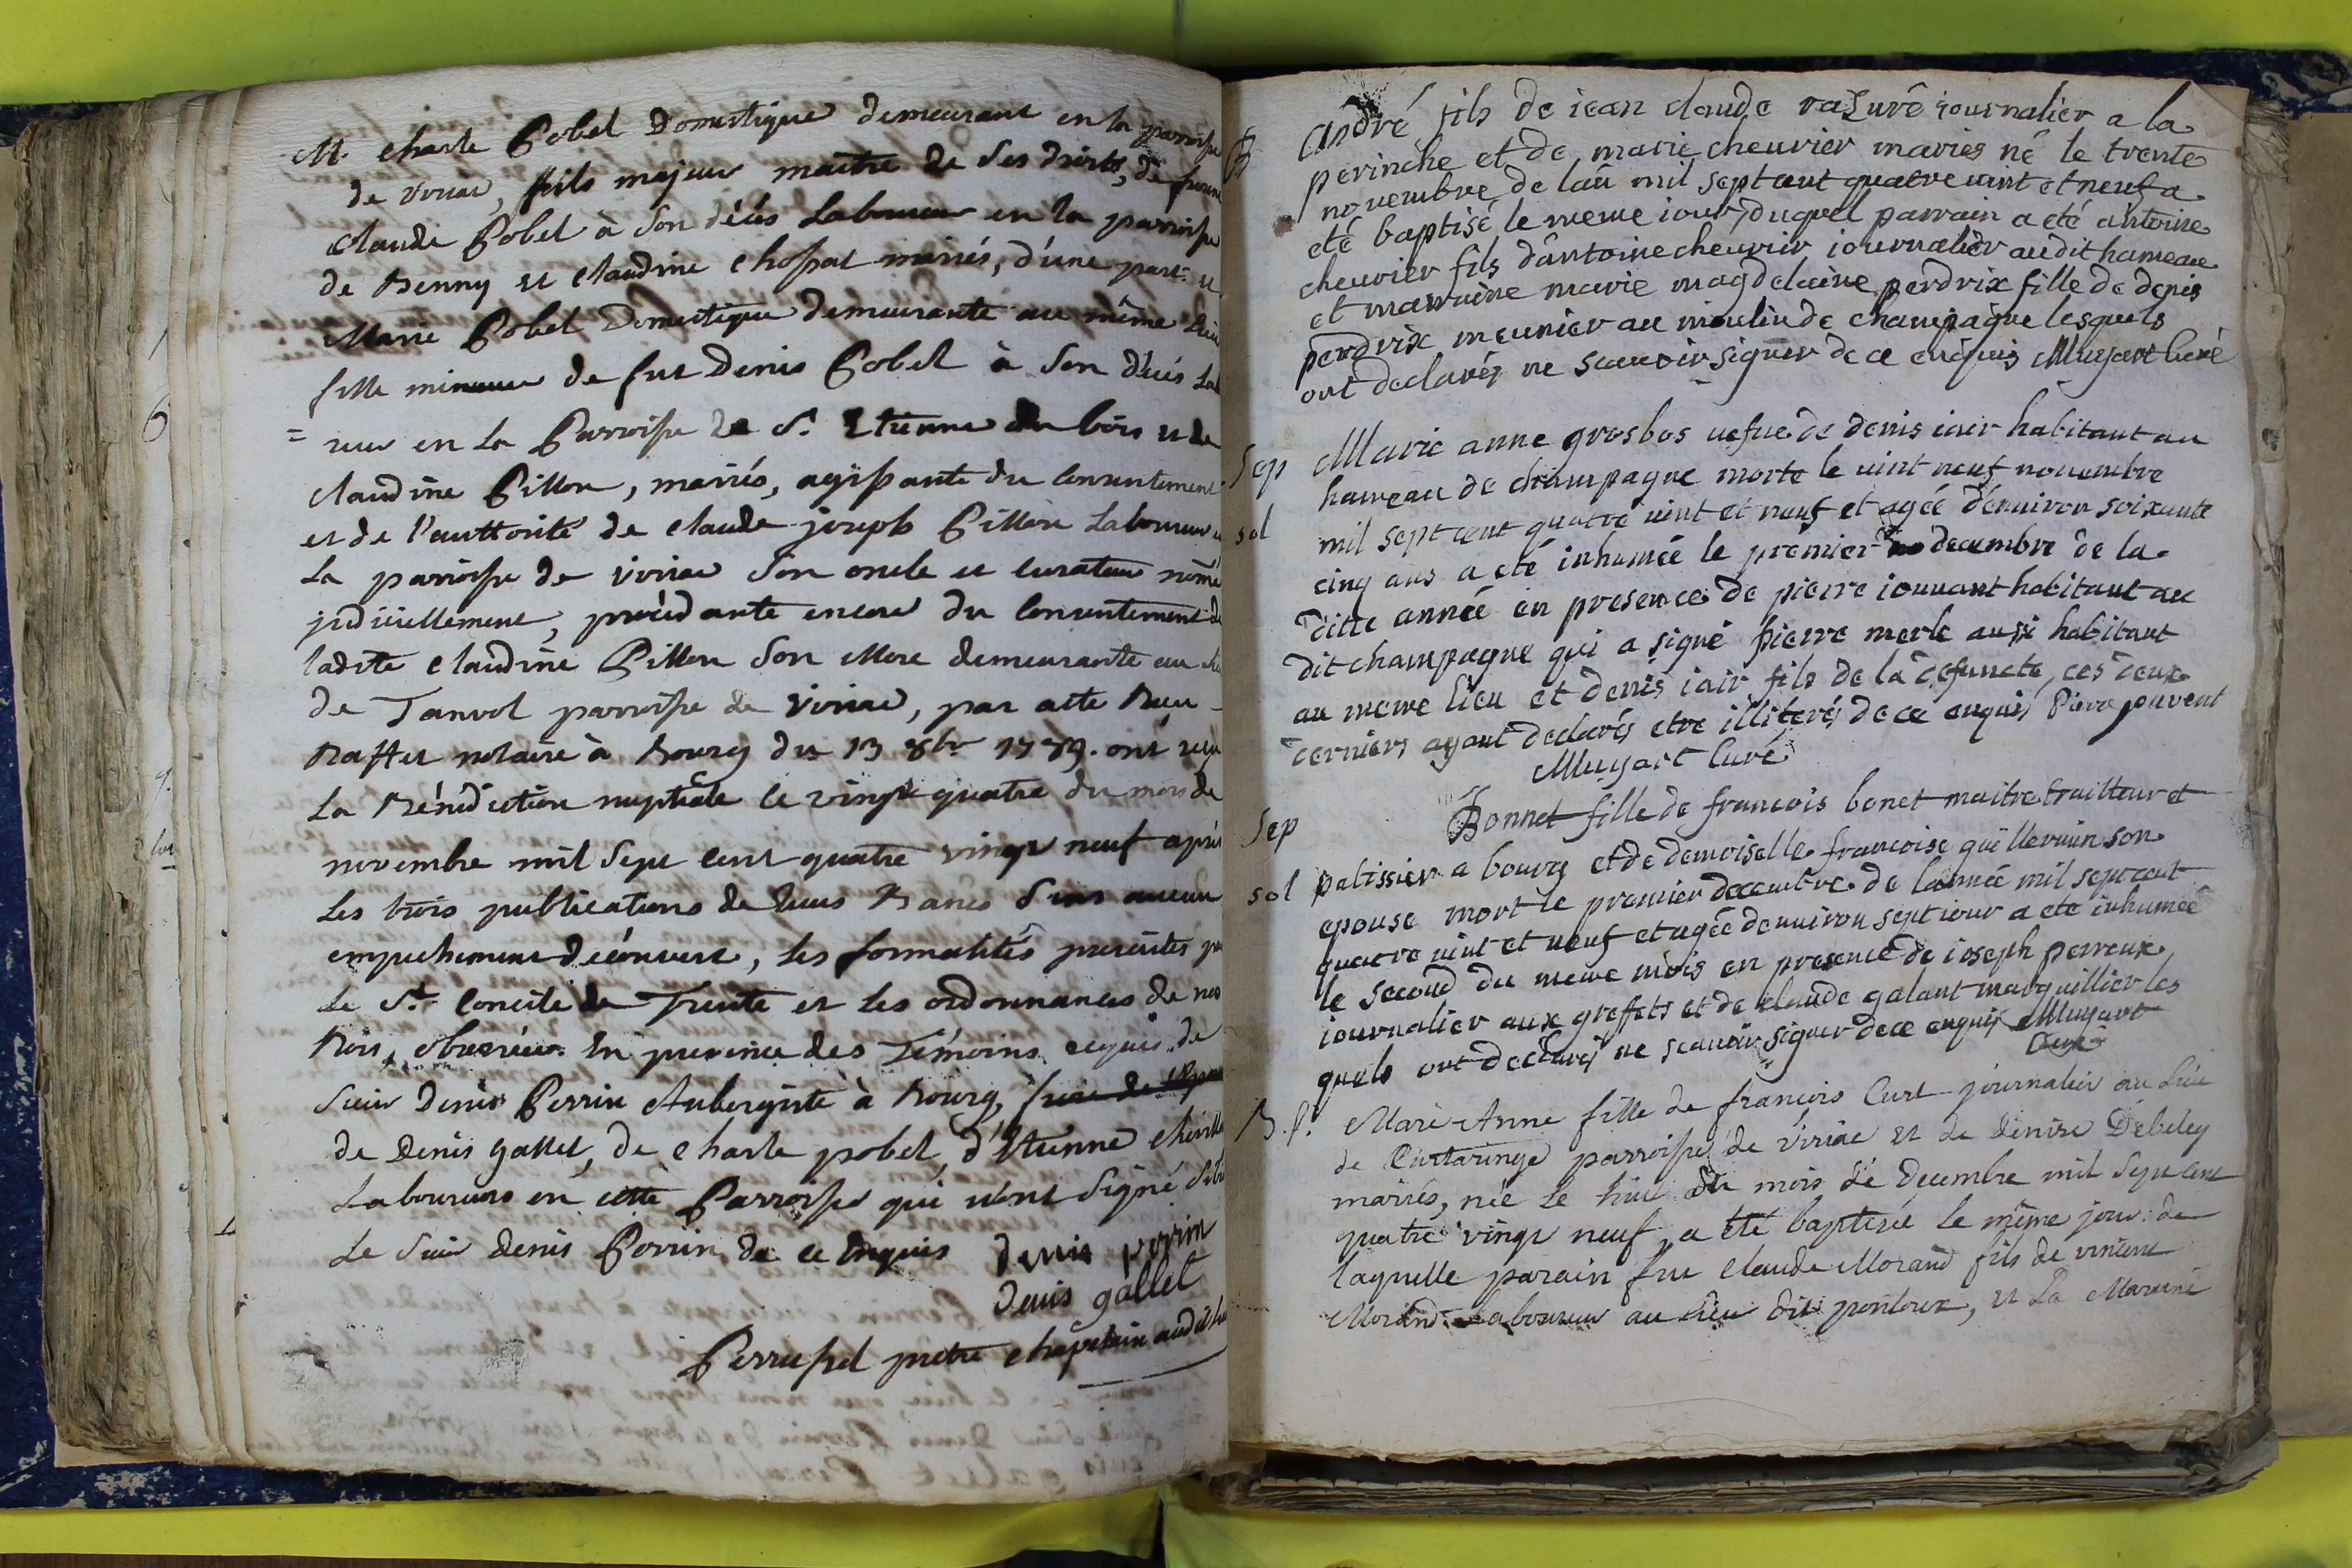 M. charle Pobel Domestique demeurant en la parroisse
de viriac, fils majeur maitre de ses droits, de furent
claude Pobel à son décés Laboureur en la parroisse
de Benny et claudine chossat mariés, d'une part: et
Marie Pobel Domestique demeurante au même Lieu
fille mineure de fut Denis Pobel à son décés Lab
= reur en La Parroisse de St. Etienne du bois et de
claudine Pillon, mariés, agissante du consentement
et de l'authorité de claude joseph Pillon Laboureur en
La parroisse de viriac son oncle et curateur nomé
judiciellement, procédante encore du consentement de
ladite claudine Pillon son Mere demeurante au lieu
de Tanvol parroisse de viriac, par acte Reçu
notaire à Bourg du 13 8bre 1789. ont reçu
La Bénédiction nuptiale le vingt quatre du mois de
novembre mil sept cent quatre vingt neuf après
Les trois publications de Leurs Bancs sans aucun
empechement découvert, les formalités prescrites par
Le St. Concile de Trente et les ordonnances de nos
Rois, observées. En presence des Témoins requis. de
Sieur Denis Perrin Aubergiste à Bourg,
de Denis gallet, de charle pobel, d'Etienne
Laboureurs en cette Parroisse qui n'ont signé
Le Sieur Denis Perrin de ce Enquis denis perrin
Denis gallet
Perrussel pretre chapelain
B André fils de iean claude rasurê iournalier a la
perinche et de marie cheuvrier mariés né le trente
novembre de lân mil sept cent quatre vint et neuf a
eté baptisé le meme iour, duquel parrain a eté antoine
cheuvrier fils d'antoine cheuvrier iournalier au dit hameau
et marraine marie magdelaine perdrix fille de denis
perdrix meunier au moulin de champagne lesquels
ont declarés ne scauoir signer de ce enquis Muyart Curé
Sep Marie anne grosbos uefue de denis iair habitant au
hameau de champagne morte le uint neuf nouembre
sol mil sept cent quatre uint et neuf et agée d'énuiron soixante
cinq ans a eté inhumée le prémier decembre de la
ditte année en presence de pierre iouuant habitant au
dit champagne qui a signé pierre merle aussi habitant
au meme lieu et denis iair fils de la defuncte, ces deux
derniers ayant declarés etre illiterés de ce enquis Pierre jouvent
Muyart Curé
Sep Bonnet fille de francois bonet maitre traitteur et
sol patissier a bourg et de demoiselle francoise quëlleruin son
epouse mort le premier decembre de lannée mil sept cent
quatre uint et neuf et agée denuiron sept iour a eté inhumée
le second du meme mois en presence de ioseph perreux
iournalier aux greffets et de claude galant marguillier les
quels ont declarés ne scauoir signer de ce enquis Muyart
Curé
B. f. Marie Anne fille de francois Curt journalier au Lieu
de Curtaringe parroisse de viriac et de Denise Debeley
mariés, née Le huit du mois de decembre mil sept cent
quatre vingt neuf, a été baptisée le même jour. de
laquelle parain fut claude Morand fils de vincent
Morand: Laboureur au Lieu dit pontoux, et La Maraine